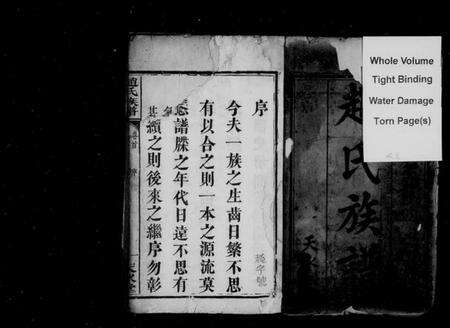 Whole Volume
Tight Binding
Water Damage
Torn Page(s)
趙氏族譜
天
序
今夫一族之生齒日繁不思
有以合之則一本之源流莫
悉譜牒之年代日遠不思有
以續之則後來之繼序勿彰
趙氏族譜
序